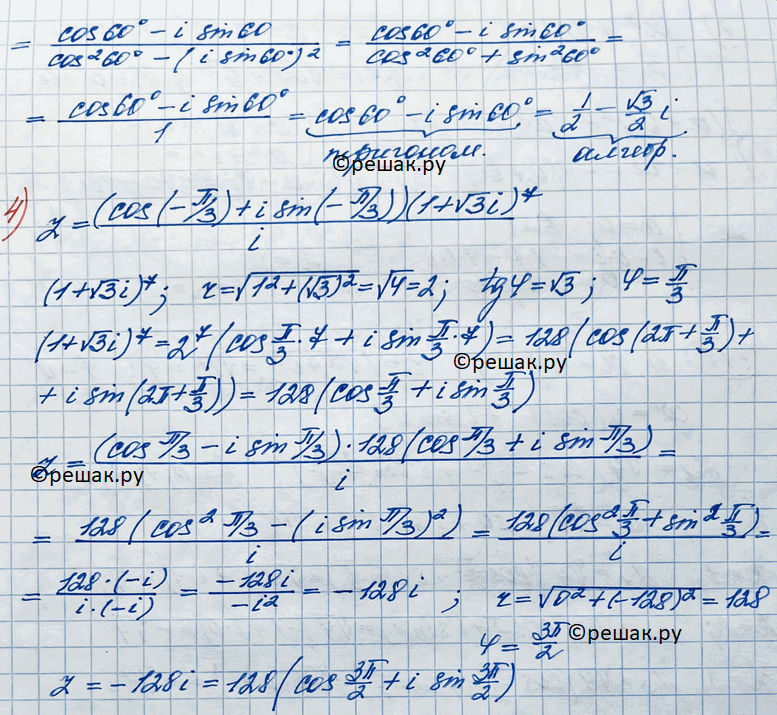 = (cos60° − i sin60) / (cos²60° − (i sin60°)²) = (cos60° − i sin60°) / (cos²60° + sin²60°) =
= (cos60° − i sin60°) / 1 = cos60° − i sin60° = 1/2 − √3/2 i
тригоном. алгебр.
©решак.ру
4) z = (cos(−π/3) + i sin(−π/3))(1+√3i)⁷ / i
(1+√3i)⁷; r=√(1²+(√3)²)=√4=2; tgφ=√3; φ=π/3
(1+√3i)⁷=2⁷(cos π/3·7 + i sin π/3·7)=128(cos(2π+π/3)+
©решак.ру
+ i sin(2π+π/3))=128(cos π/3 + i sin π/3)
z = (cos π/3 − i sin π/3)·128(cos π/3 + i sin π/3) / i =
©решак.ру
= 128(cos² π/3 − (i sin π/3)²) / i = 128(cos² π/3 + sin² π/3) / i =
= 128·(−i) / i·(−i) = −128i / −i² = −128i ; r=√(0²+(−128)²)=128
φ= 3π/2 ©решак.ру
z = −128i = 128(cos 3π/2 + i sin 3π/2)